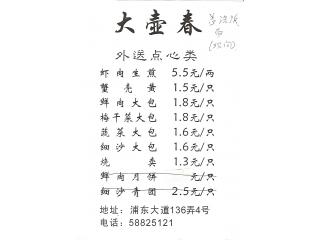 大壶春
外送点心类
虾肉生煎 5.5元/两
蟹壳黄 1.5元/只
鲜肉大包 1.8元/只
梅干菜大包 1.8元/只
蔬菜大包 1.6元/只
细沙大包 1.6元/只
烧卖 1.3元/只
鲜肉月饼 元/只
细沙青团 2.5元/只
地址：浦东大道136弄4号
电话：58825121